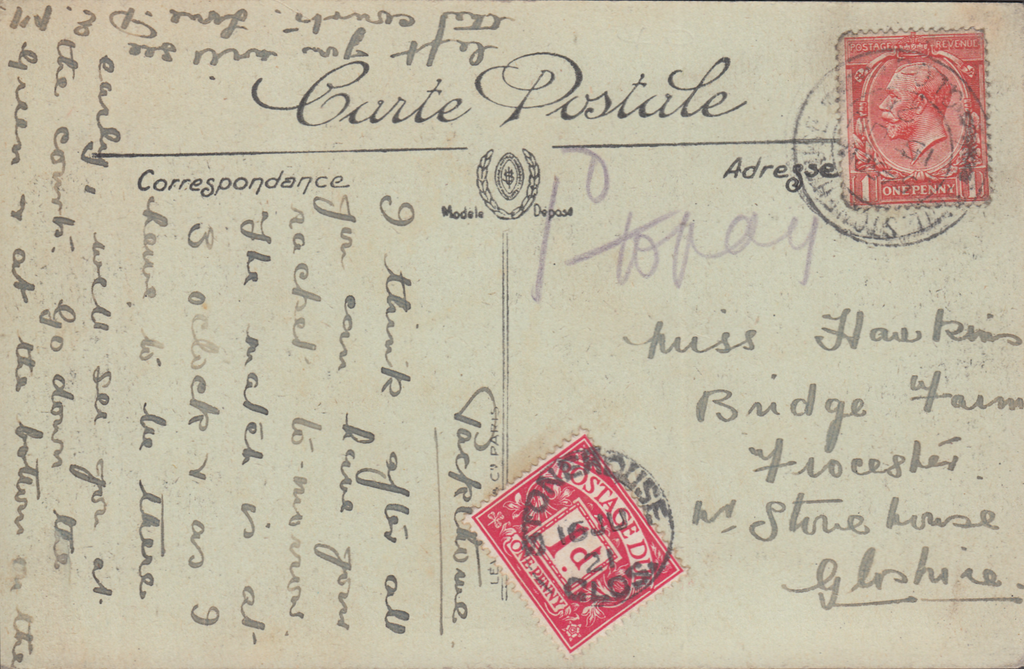 Carte Postale
Correspondance
Adresse
Modèle Déposé
POSTAGE REVENUE
1 ONE PENNY 1
1d to pay
Miss Hawkins
Bridge Farm
Frocester
Nr Stonehouse
Gloshire.
Packthorne
I think after all
you can have your
racket to-morrow
The match is at
3 oclock & as I
have to be there
early, I will see you at
the court. Go down the
Green & at the bottom on the
left you will see
the court.
POSTAGE DUE
1D.
ONE PENNY
STONEHOUSE
16 JU
GLOS